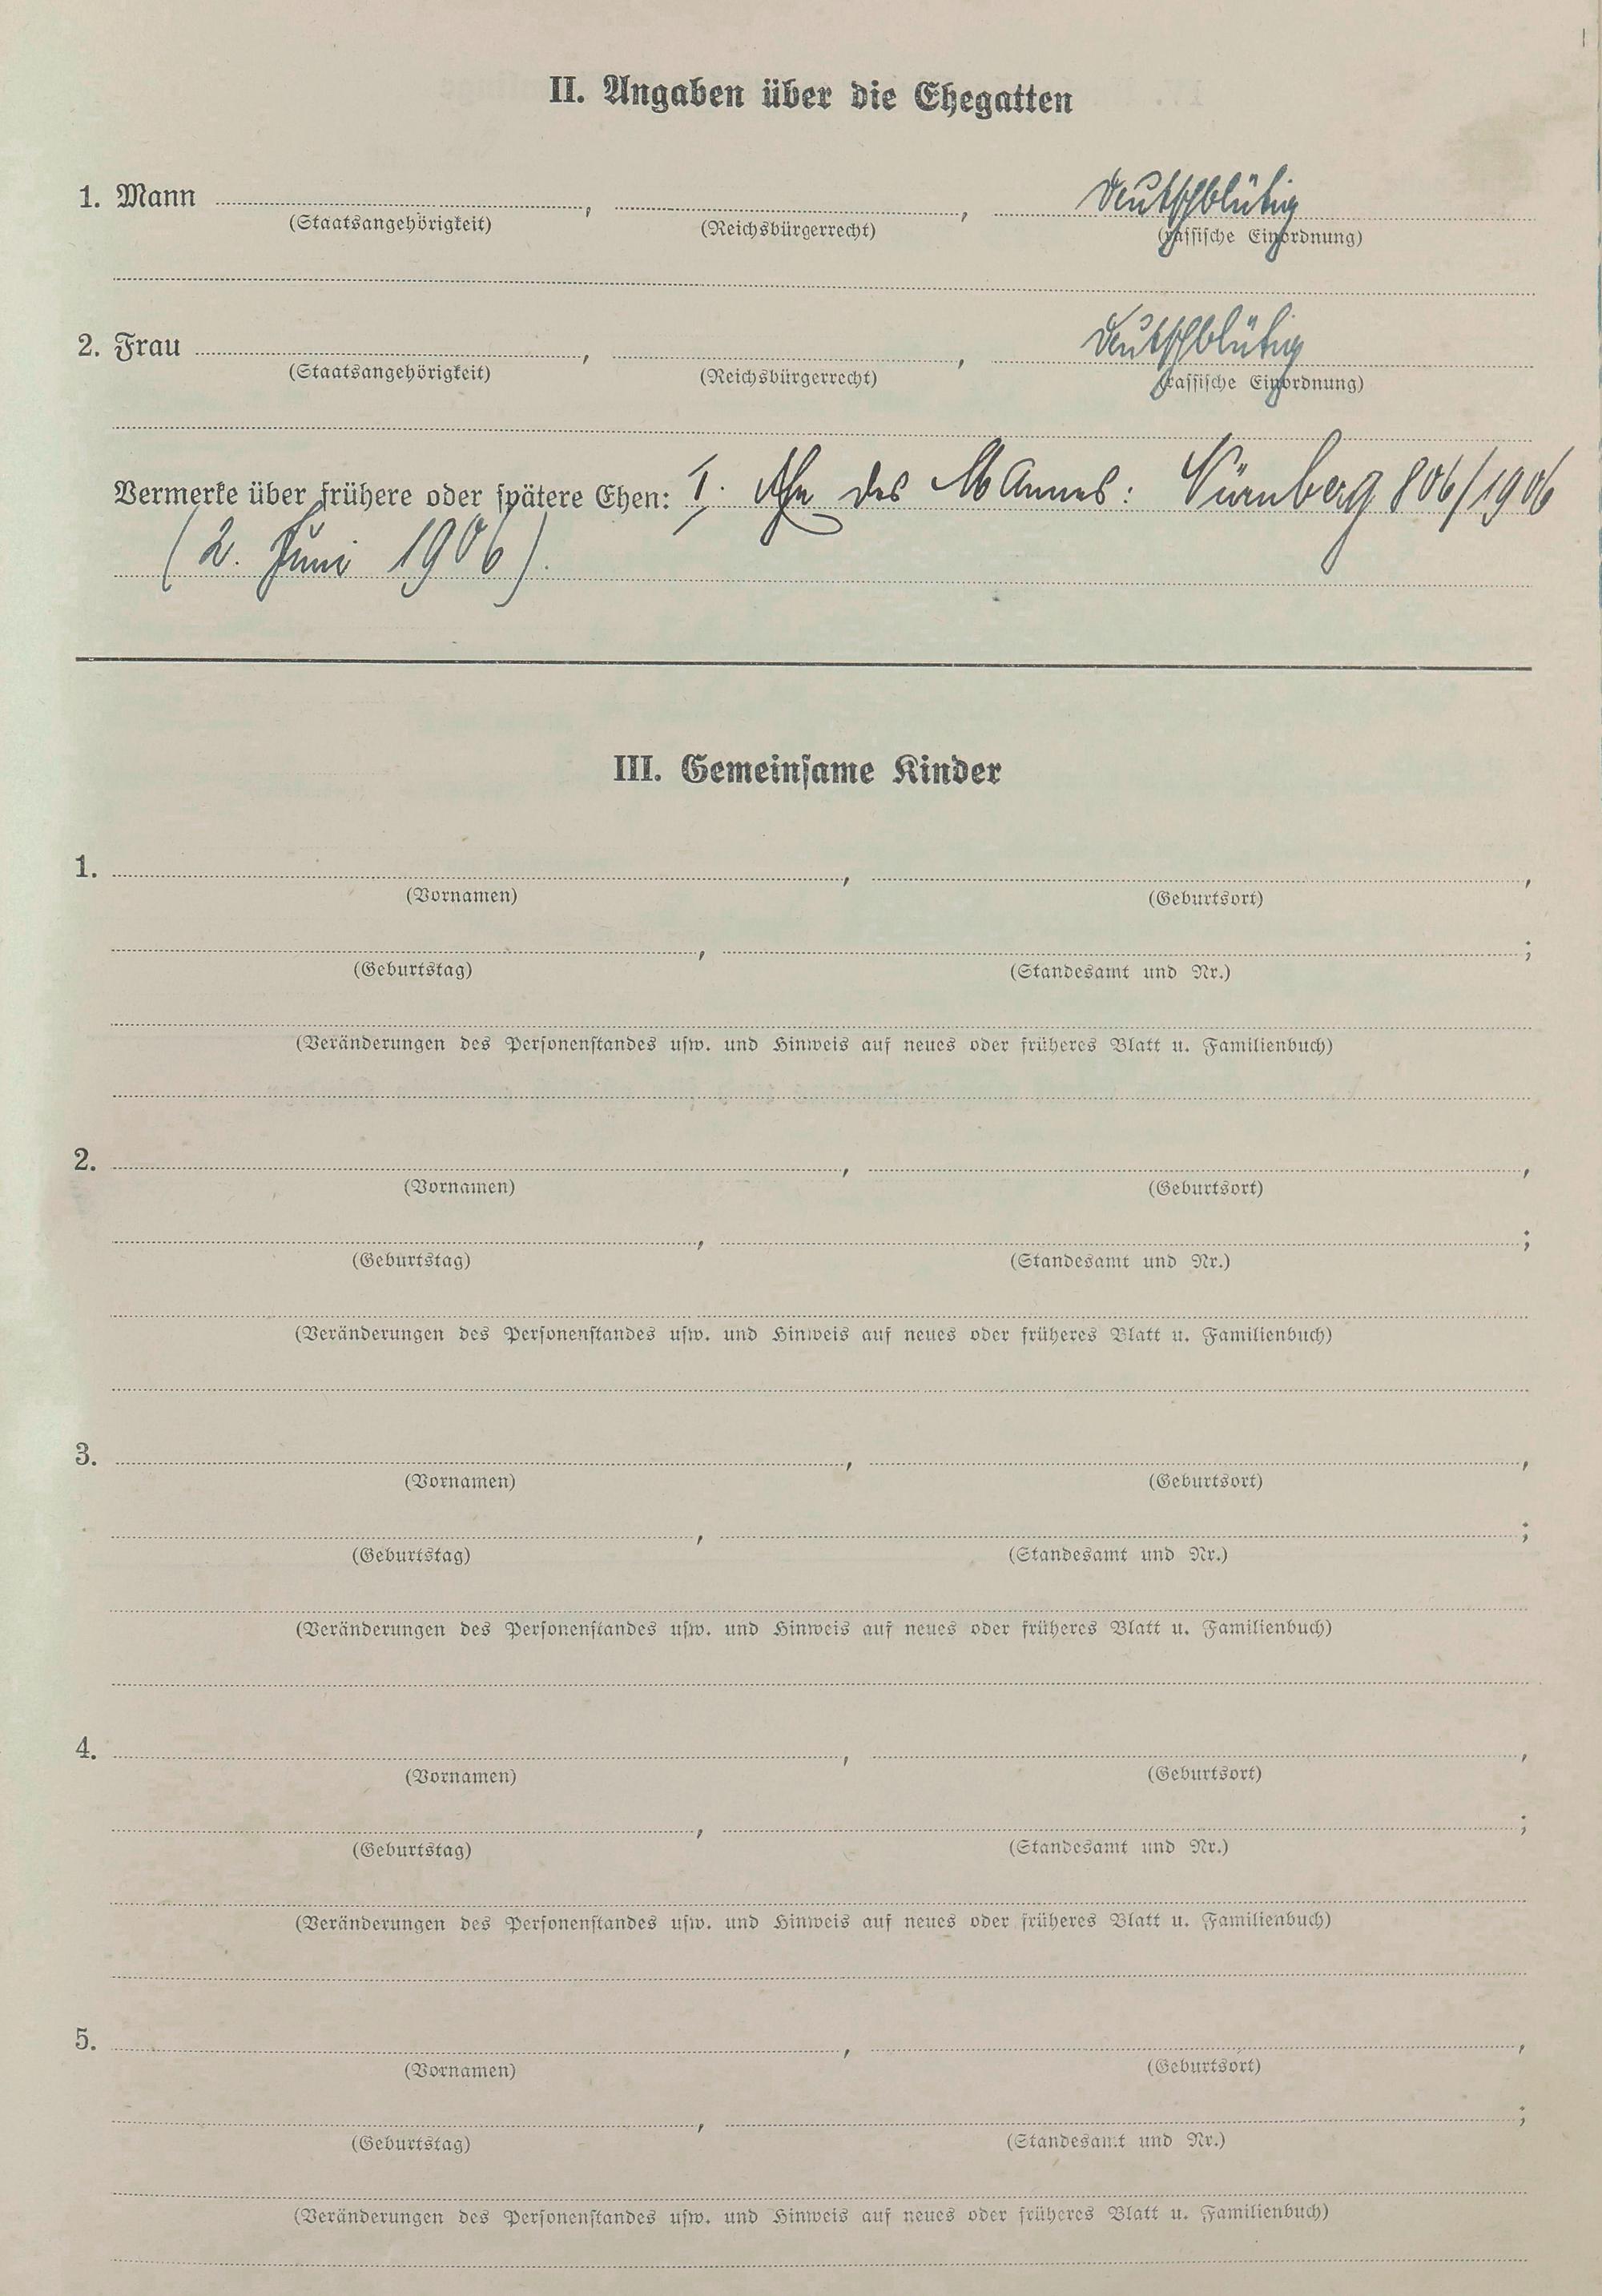 II. Angaben über die Ehegatten
1. Mann , , deutschblütig
(Staatsangehörigkeit) (Reichsbürgerrecht) (rassische Einordnung)
2. Frau , , deutschblütig
(Staatsangehörigkeit) (Reichsbürgerrecht) (rassische Einordnung)
Vermerke über frühere oder spätere Ehen: I. Ehe des Mannes: Nürnberg 806/1906
(2. Juni 1906).
III. Gemeinsame Kinder
1. , ,
(Vornamen) (Geburtsort)
, ;
(Geburtstag) (Standesamt und Nr.)
(Veränderungen des Personenstandes usw. und Hinweis auf neues oder früheres Blatt u. Familienbuch)
2. , ,
(Vornamen) (Geburtsort)
, ;
(Geburtstag) (Standesamt und Nr.)
(Veränderungen des Personenstandes usw. und Hinweis auf neues oder früheres Blatt u. Familienbuch)
3. , ,
(Vornamen) (Geburtsort)
, ;
(Geburtstag) (Standesamt und Nr.)
(Veränderungen des Personenstandes usw. und Hinweis auf neues oder früheres Blatt u. Familienbuch)
4. , ,
(Vornamen) (Geburtsort)
, ;
(Geburtstag) (Standesamt und Nr.)
(Veränderungen des Personenstandes usw. und Hinweis auf neues oder früheres Blatt u. Familienbuch)
5. , ,
(Vornamen) (Geburtsort)
, ;
(Geburtstag) (Standesamt und Nr.)
(Veränderungen des Personenstandes usw. und Hinweis auf neues oder früheres Blatt u. Familienbuch)